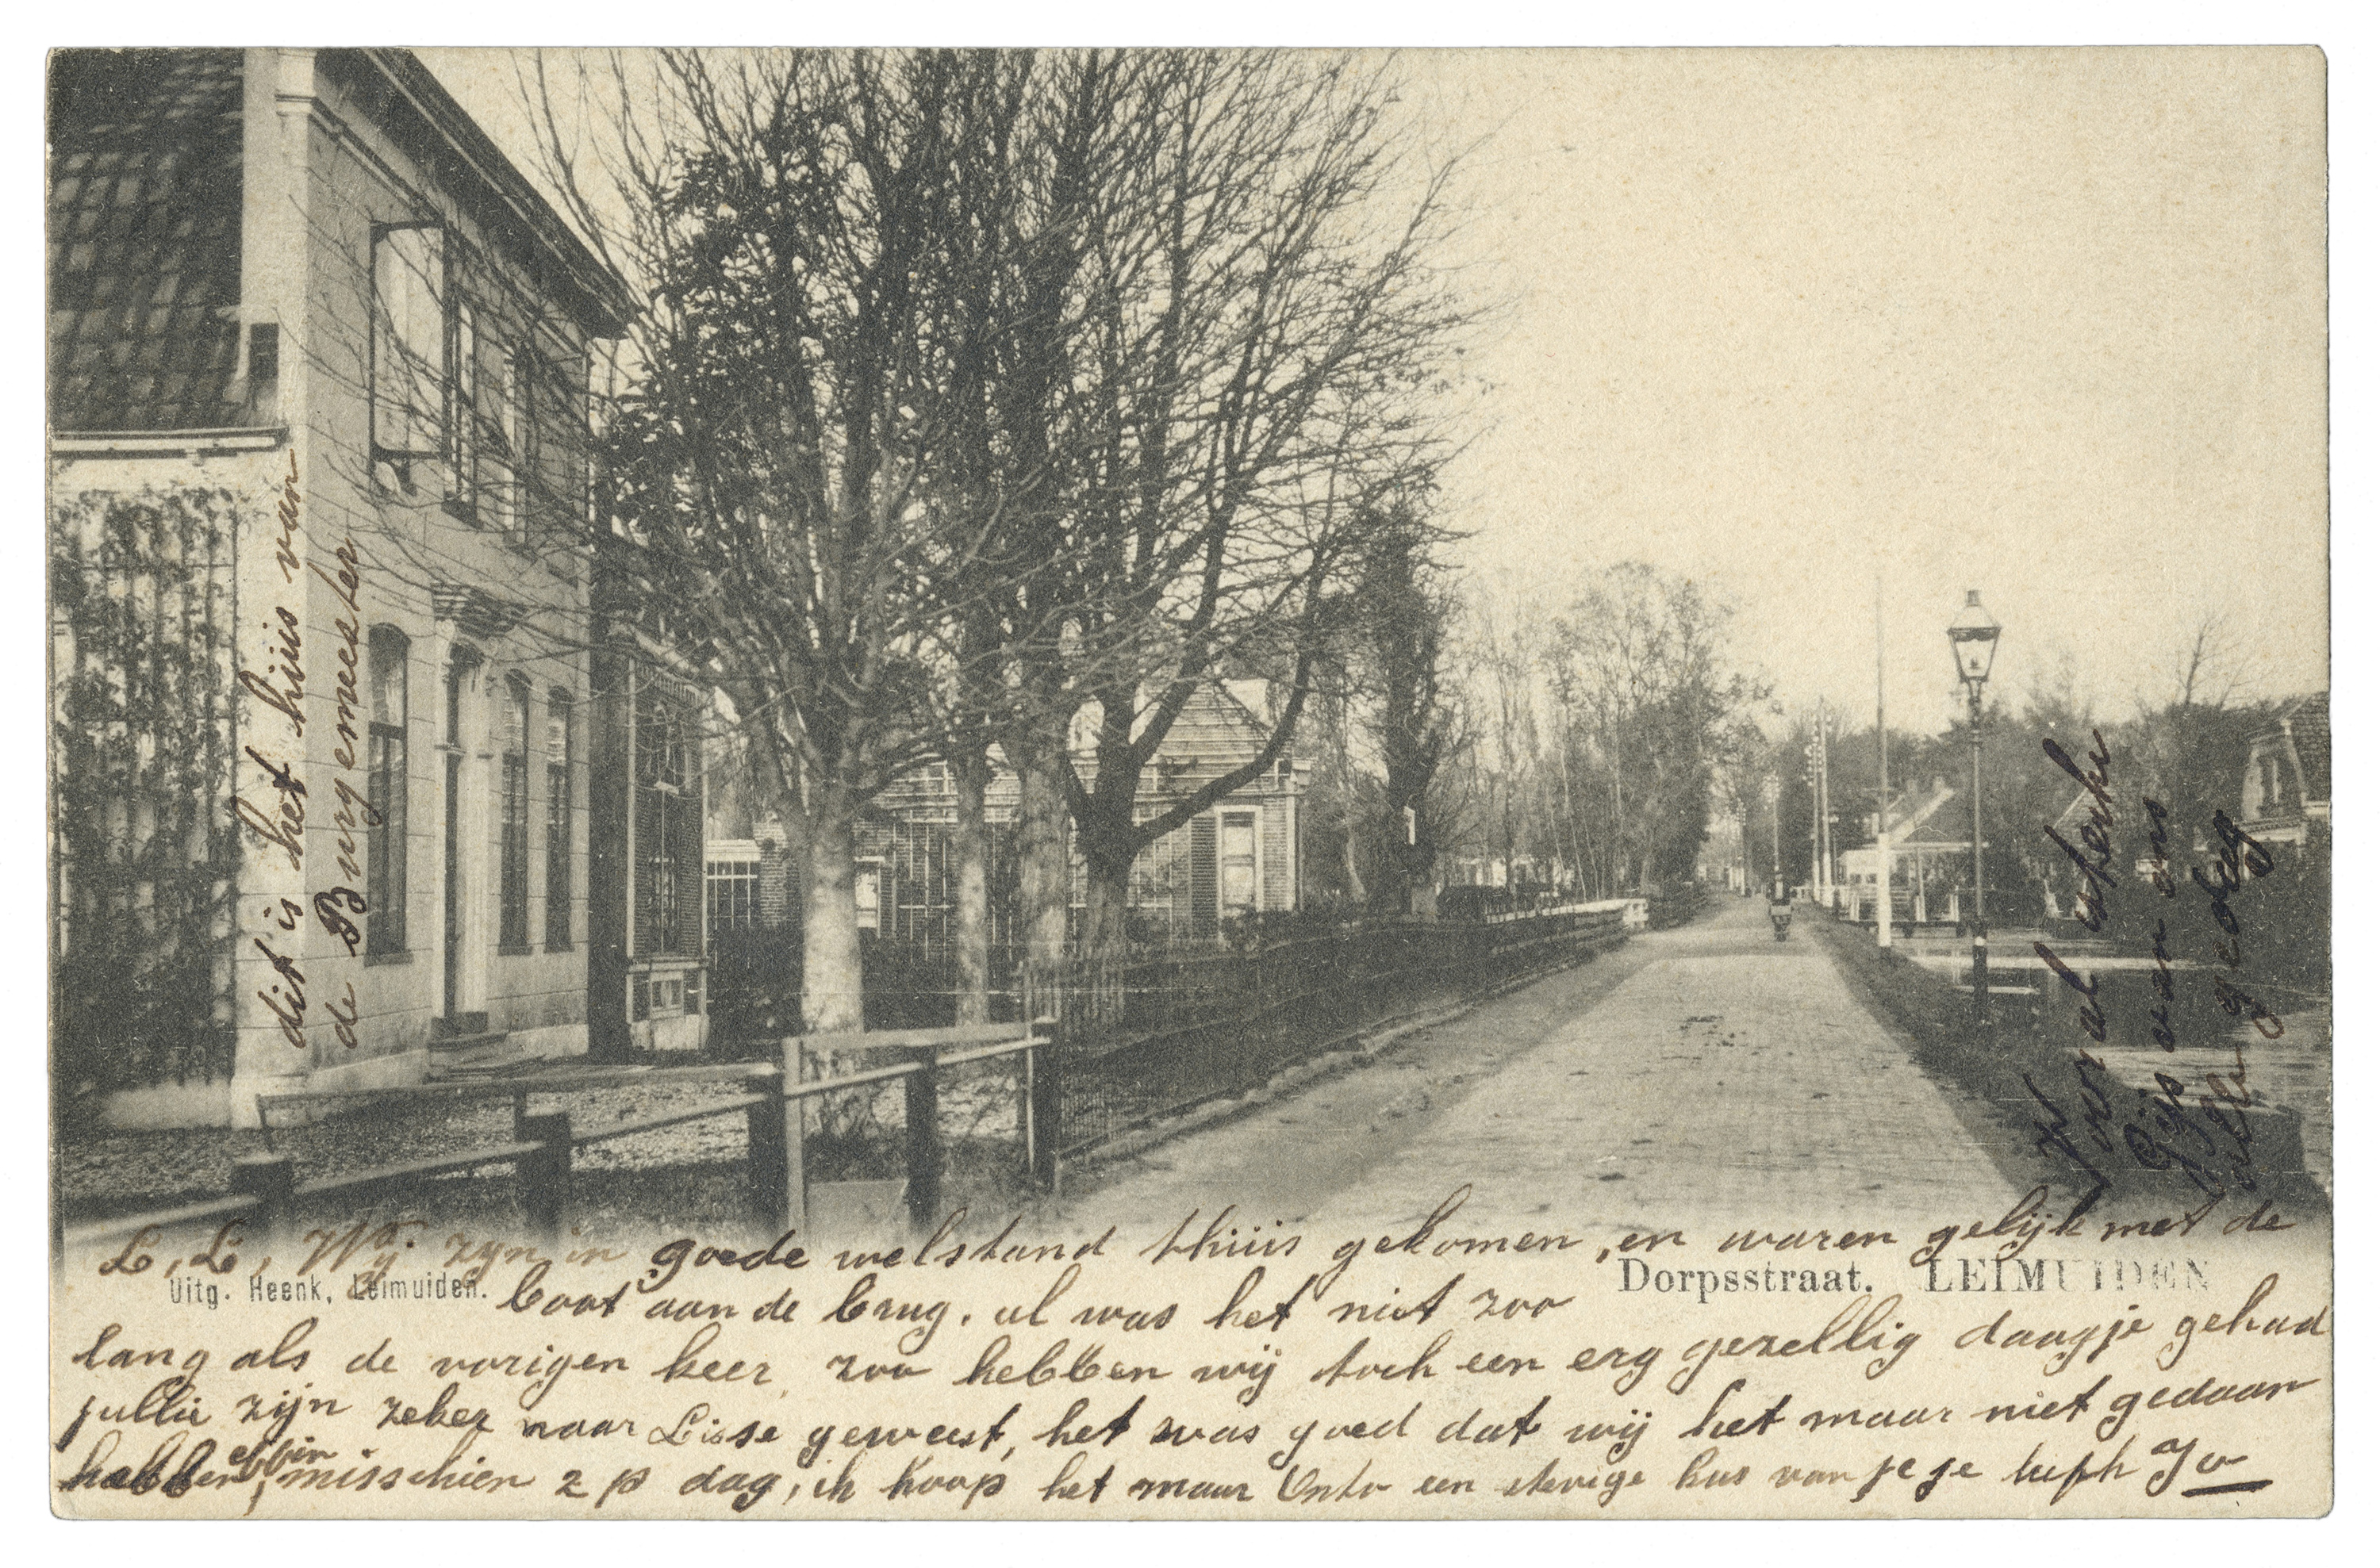 dit is het huis van
de Burgemeester
Vooral sterkte
Gijs van ons
allen gedag
L, L, Wij zijn in goede welstand thuis gekomen, en waren gelijk met de
Uitg. Heenk, Leimuiden.
Dorpsstraat. LEIMUIDEN
boot aan de brug. al was het niet zoo
lang als de vorigen keer, zoo hebben wij toch een erg gezellig daagje gehad
jullie zijn zeker naar Lisse geweest, het was goed dat wij het maar niet gedaan
hebben, misschien 2 p dag, ik hoop het maar een stevige kus van je je Jo